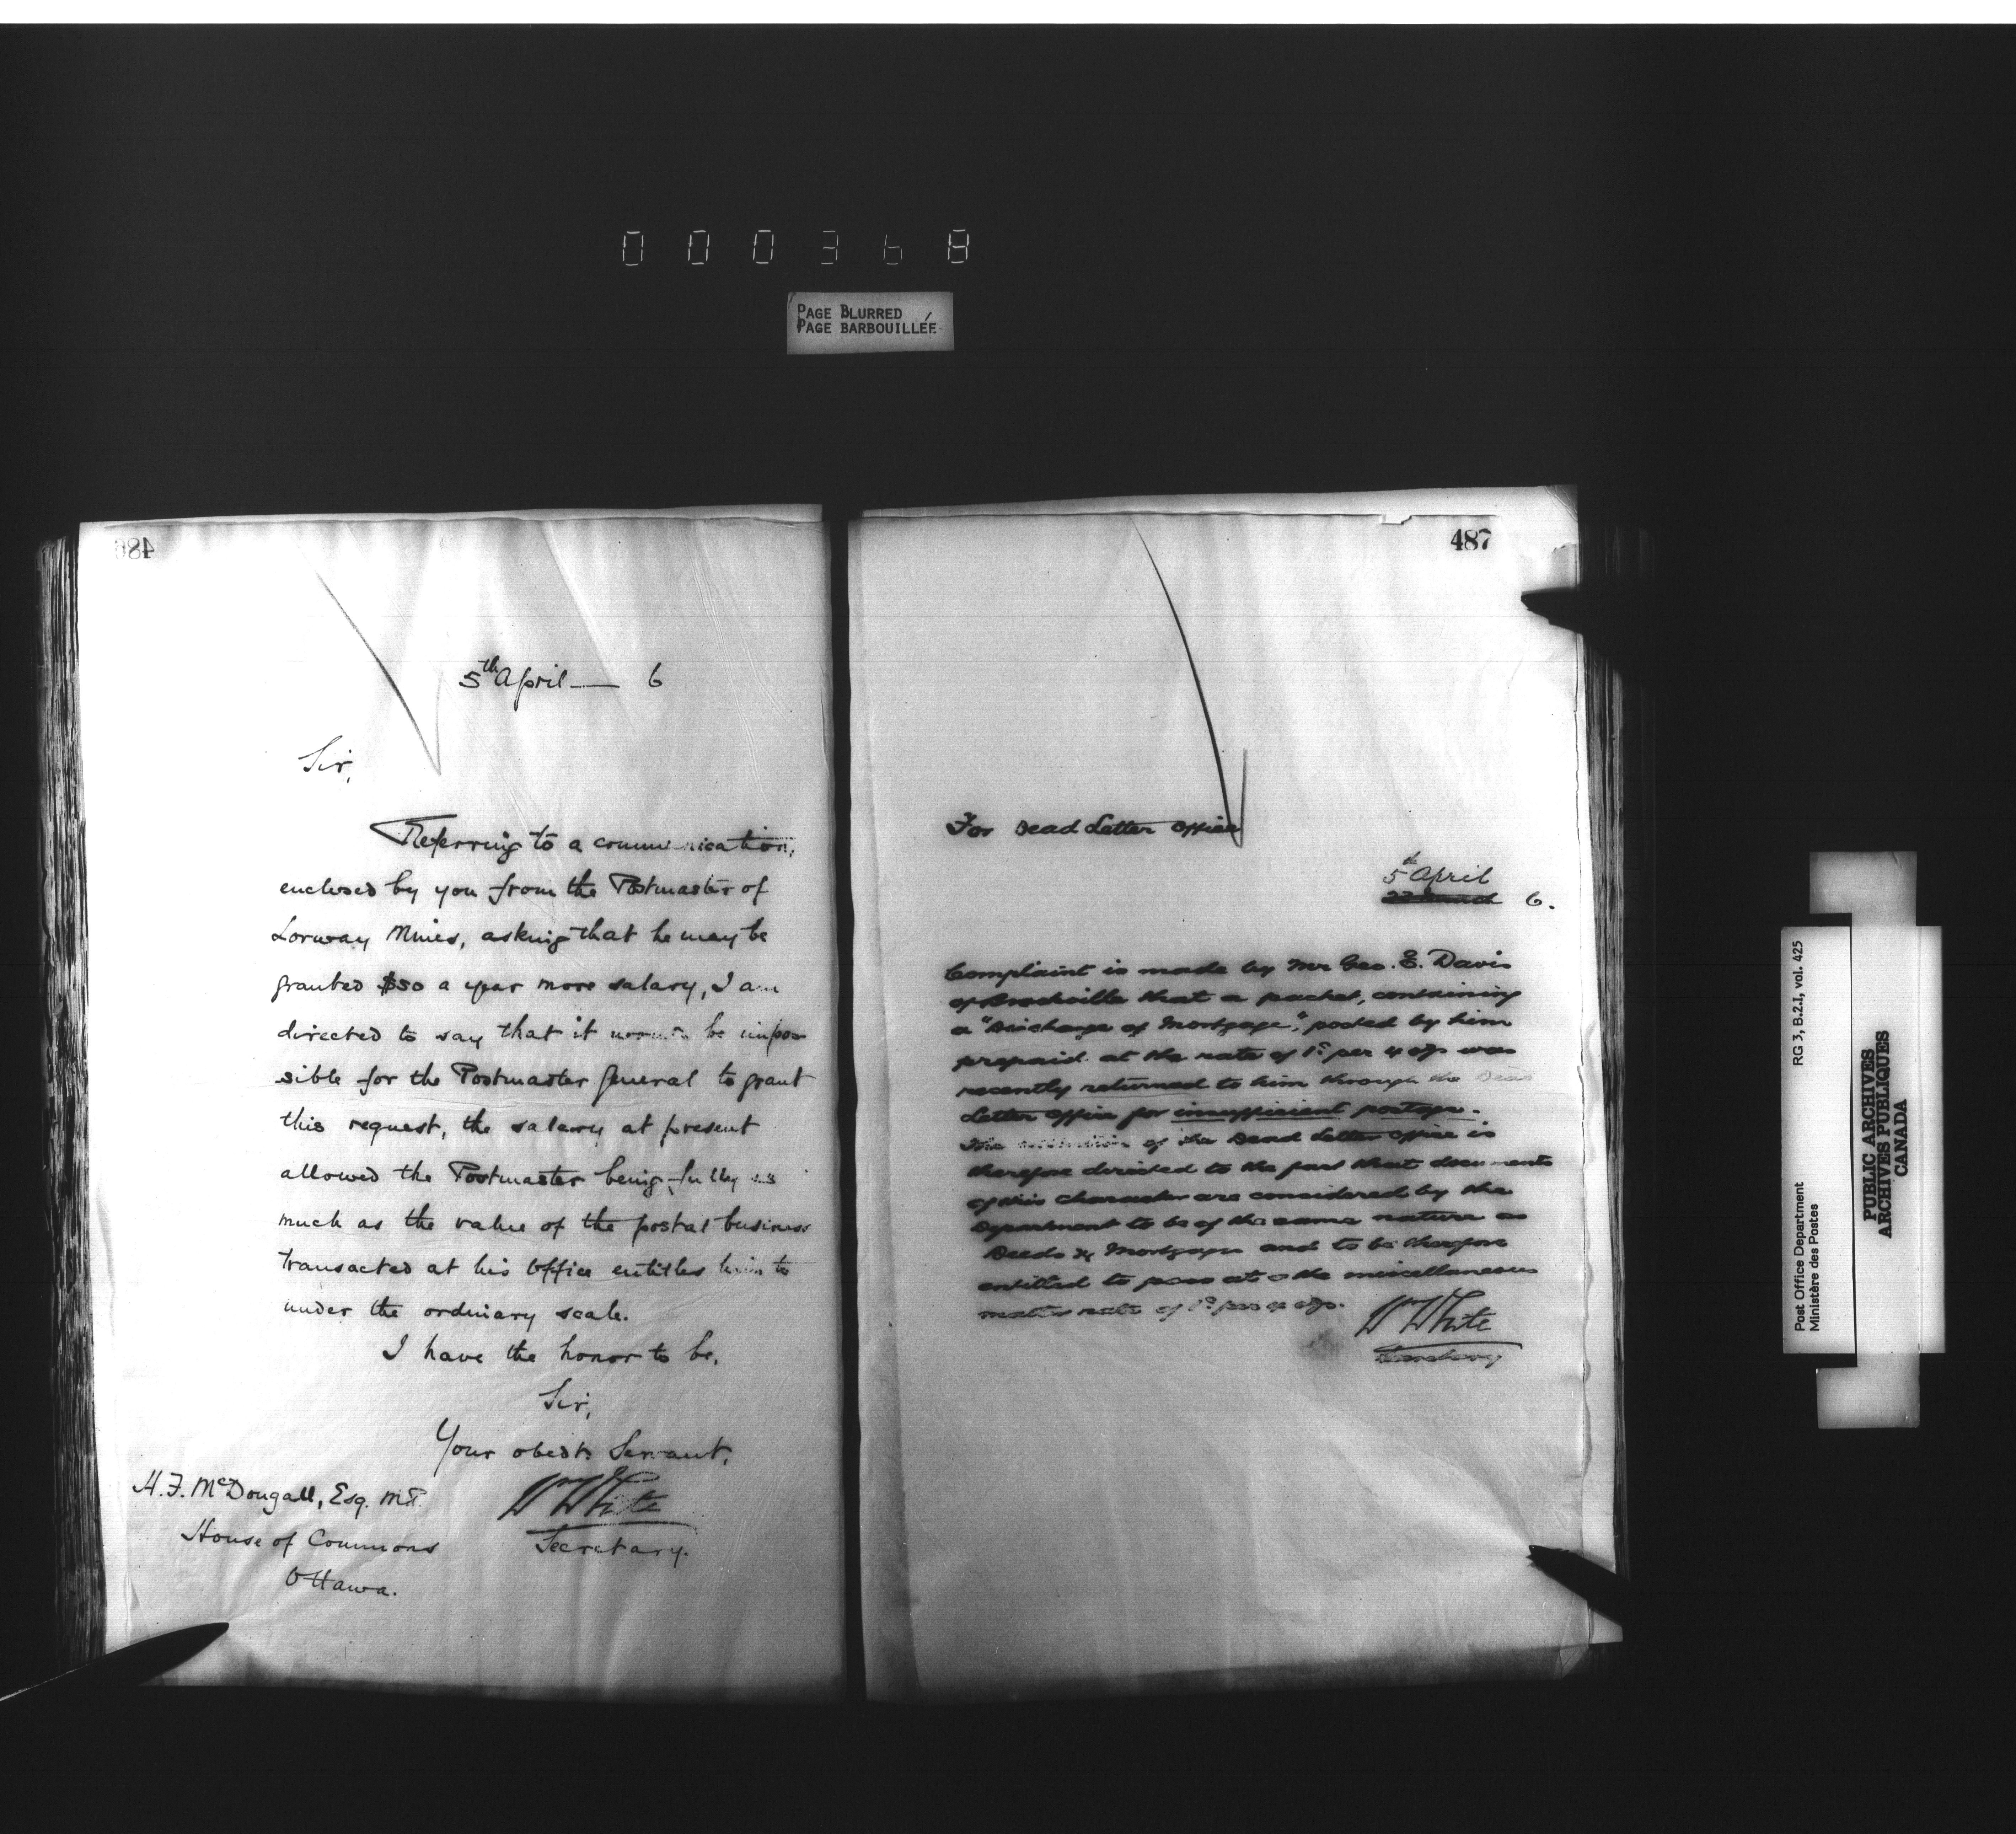 000368
PAGE BLURRED
PAGE BARBOUILLÉE
486
5th April — 6
Sir,
Referring to a communication,
enclosed by you from the Postmaster of
Lorway Mines, asking that he may be
granted $50 a year more salary, I am
directed to say that it would be impos
sible for the Postmaster General to grant
this request, the salary at present
allowed the Postmaster being fully as
much as the value of the postal business
transacted at his Office entitles him to
under the ordinary scale.
I have the honor to be,
Sir,
Your obedt. Servant,
W White
Secretary.
H. F. McDougall, Esq. M.P.
House of Commons
Ottawa.
487
For Dead Letter Office
5th April
6.
Complaint is made by Mr Geo. E. Davis
of Brockville that a packet, containing
a "Discharge of Mortgage," posted by him
prepaid at the rate of 1c per 4 ozs was
recently returned to him through the Dead
Letter Office for insufficient postage.
The attention of the Dead Letter Office is
therefore directed to the fact that documents
of this character are considered by the
Department to be of the same nature as
Deeds & Mortgages and to be therefore
entitled to pass at the miscellaneous
matter rate of 1c per 4 ozs.
W White
Secretary
Post Office Department RG 3, B.2.I, vol. 425
Ministère des Postes
PUBLIC ARCHIVES
ARCHIVES PUBLIQUES
CANADA